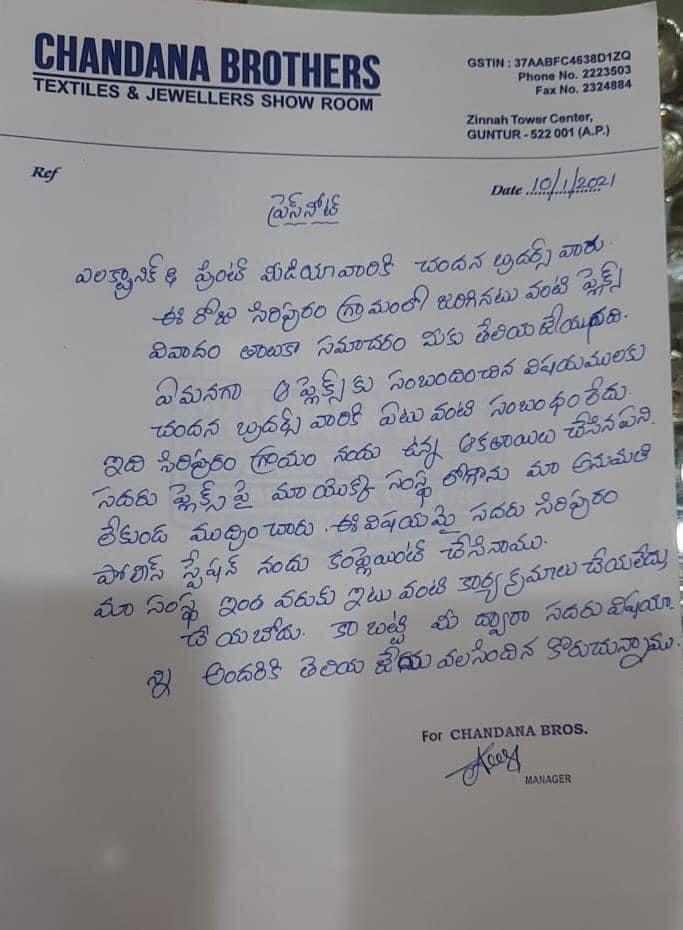 CHANDANA BROTHERS
TEXTILES & JEWELLERS SHOW ROOM
GSTIN : 37AABFC4638D1ZQ
Phone No. 2223503
Fax No. 2324884
Zinnah Tower Center,
GUNTUR - 522 001 (A.P.)
Ref
Date 10/1/2021
ప్రెస్‌నోట్
ఎలక్ట్రానిక్ & ప్రింట్ మీడియావారికి చందన బ్రదర్స్ వారు.
ఈ రోజు సిరిపురం గ్రామంలో జరిగినటు వంటి ఫ్లెక్స్
వివాదం తాలుకా సమాచరం మీకు తేలియ జేయునది.
ఏమనగా ఆ ఫ్లెక్స్ కు సంబందించిన విషయములకు
చందన బ్రదర్స్ వారికి ఏటు వంటి సంబంధం లేదు.
ఇది సిరిపురం గ్రామం నందు ఉన్న ఆకతాయిలు చేసిన పని.
సదరు ఫ్లెక్స్ పై మా యొక్క సంస్థ లోగాను మా అనుమతి
లేకుండ ముద్రించారు. ఈ విషయమై సదరు సిరిపురం
పోలిస్ స్టేషన్ నందు కంప్లెయింట్ చేసినాము.
మా సంస్థ ఇంత వరుకు ఇటు వంటి కార్య క్రమాలు చేయలేదు
చే యబోదు. కా బట్టి మీ ద్వారా సదరు విషయా
న్ని అందరికి తెలియ జేయ వలసిందిన కోరుచున్నాము.
For CHANDANA BROS.
MANAGER